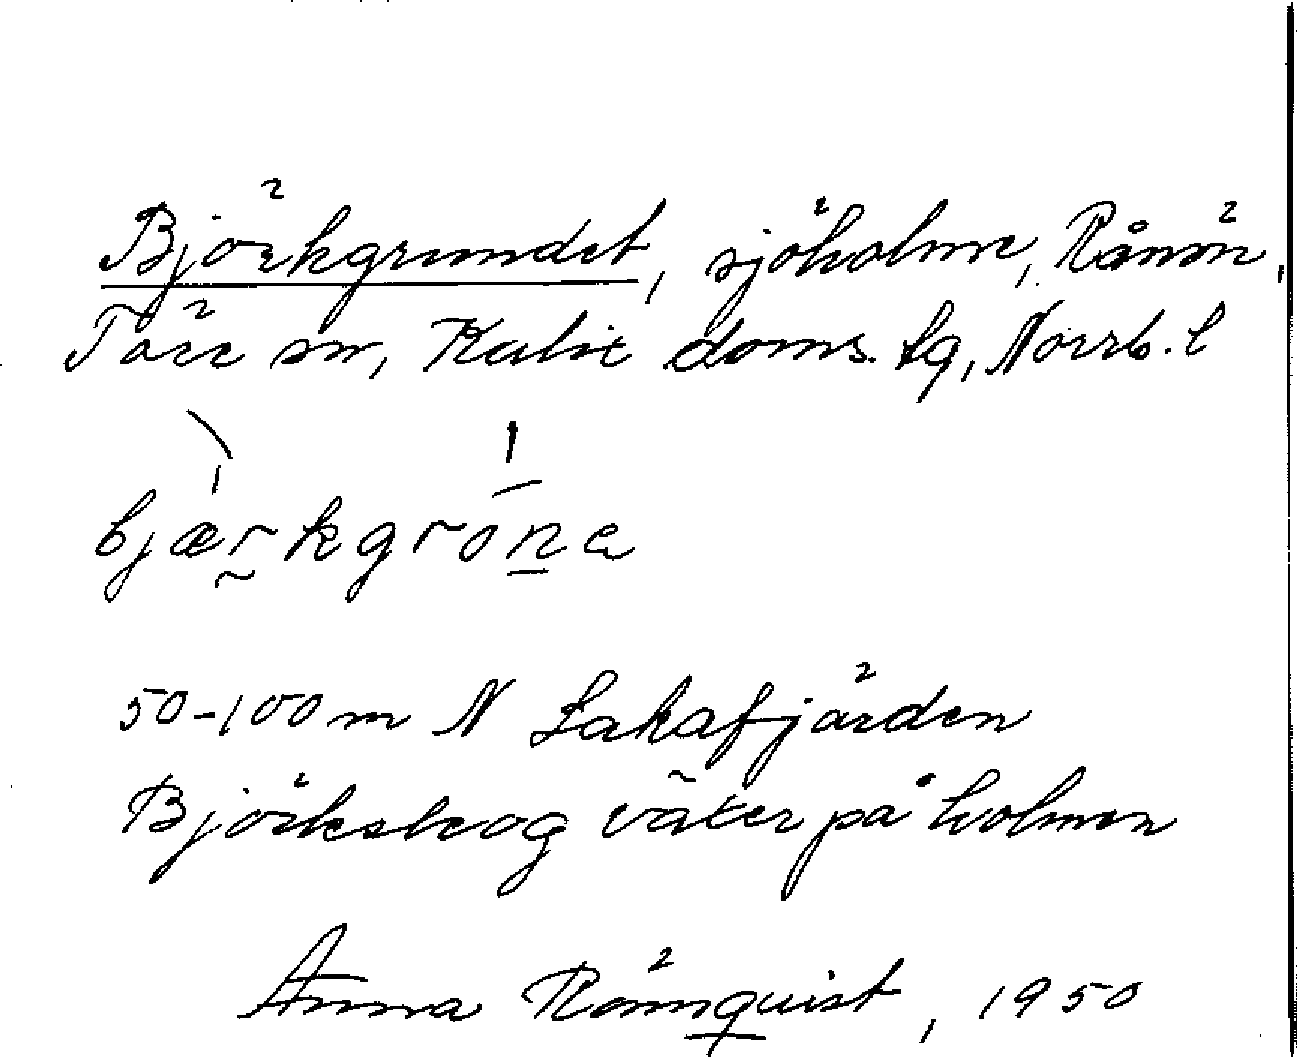 Björkgrundet, sjöholme, Rånön,
Töre sn, Kalix doms. tg, Norrb. l
bjærkgróne
50-100 m N Lakafjärden
Björkskog växer på holmen
Anna Rönnquist, 1950